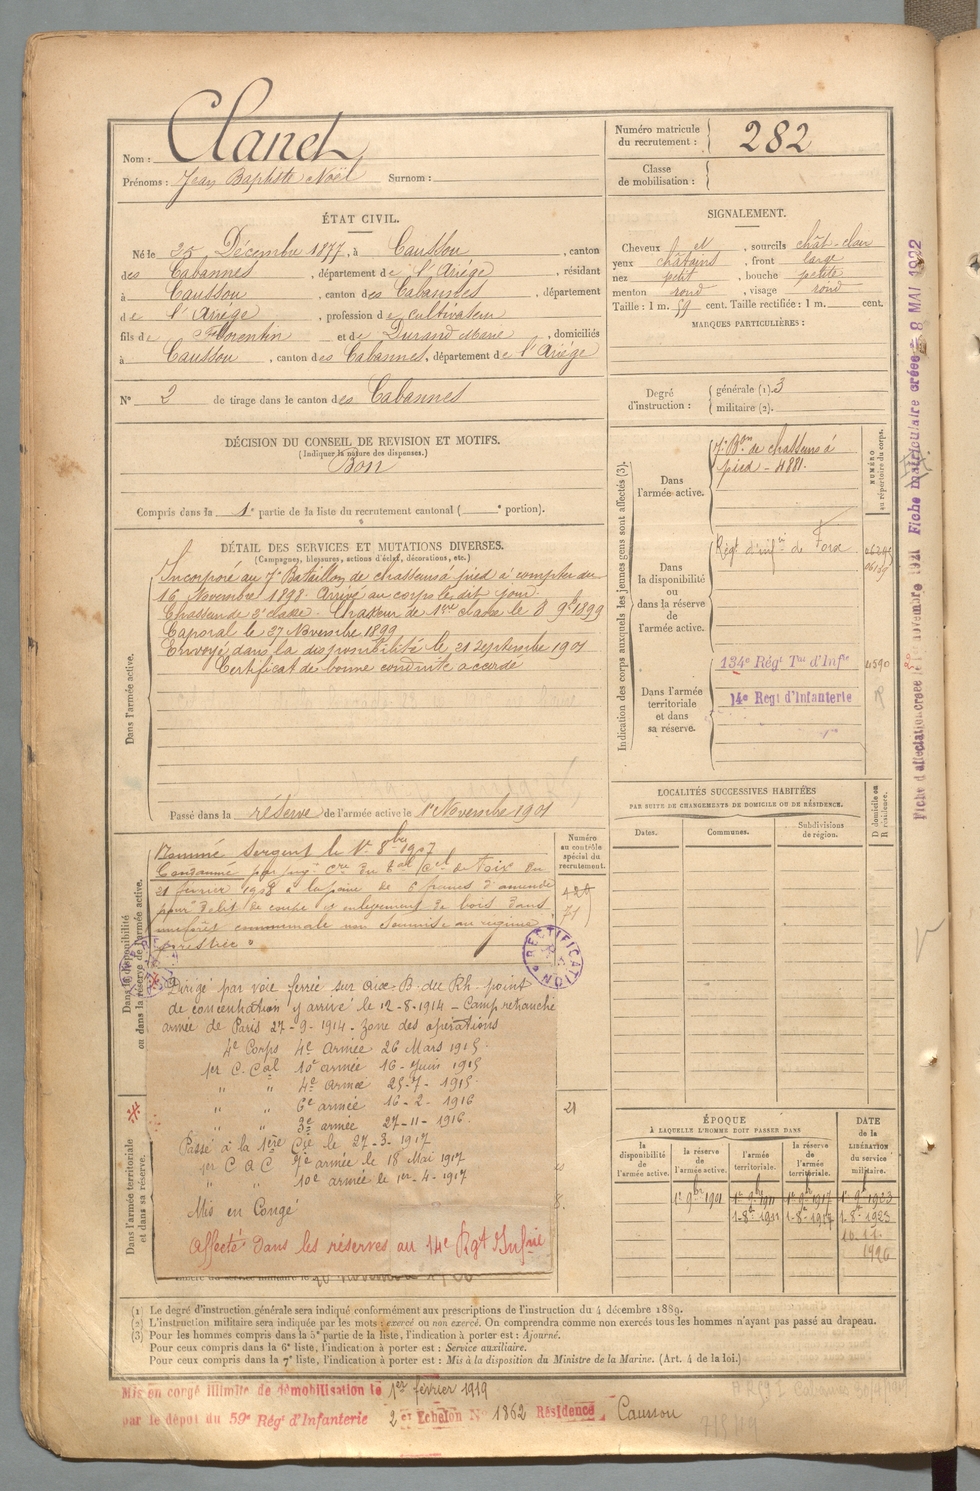 Nom : Clanet
Prénoms : Jean Baptiste Noël Surnom :
Numéro matricule du recrutement : 282
Classe de mobilisation :
ÉTAT CIVIL.
Né le 25 Décembre 1877, à Caussou, canton
des Cabannes, département de l'Ariége, résidant
à Caussou, canton des Cabannes, département
de l'Ariége, profession de cultivateur
fils de Florentin et de Durand Marie, domiciliés
à Caussou, canton des Cabannes, département de l'Ariége
N° 2 de tirage dans le canton des Cabannes
SIGNALEMENT.
Cheveux et, sourcils chât-clair
yeux châtains, front large
nez petit, bouche petite
menton rond, visage rond
Taille : 1 m. 59 cent. Taille rectifiée : 1 m. cent.
MARQUES PARTICULIÈRES :
Degré d'instruction : générale (1). 3
militaire (2).
DÉCISION DU CONSEIL DE REVISION ET MOTIFS.
(Indiquer la nature des dispenses.)
Bon
Compris dans la 1e partie de la liste du recrutement cantonal ( e portion).
DÉTAIL DES SERVICES ET MUTATIONS DIVERSES.
(Campagnes, blessures, actions d'éclat, décorations, etc.)
Dans l'armée active.
Incorporé au 7e Bataillon de chasseurs à pied à compter du
16 Novembre 1898. Arrivé au corps le dit jour.
Chasseur de 2e classe. Chasseur de 1ère classe le 8 9bre 1899
Caporal le 27 Novembre 1899
Envoyé dans la disponibilité le 21 Septembre 1901
Certificat de bonne conduite accordé
Passé dans la réserve de l'armée active le 1er Novembre 1901
Indication des corps auxquels les jeunes gens sont affectés (3).
NUMÉRO au répertoire du corps.
Dans l'armée active.
7e Bon de chasseurs à
pied - 4881.
Dans la disponibilité ou dans la réserve de l'armée active.
Régt d'infie de Foix
Dans l'armée territoriale et dans sa réserve.
134e Régt Tal d'Infie 4590
14e Regt d'Infanterie R
LOCALITÉS SUCCESSIVES HABITÉES
PAR SUITE DE CHANGEMENTS DE DOMICILE OU DE RÉSIDENCE.
Dates. Communes. Subdivisions de région. D domicile ou R résidence.
Dans la disponibilité ou dans la réserve de l'armée active.
Numéro au contrôle spécial du recrutement.
Nommé Sergent le 1er 8bre 1907
Condamné par jugt Cre du Bal Cel de Foix du
21 février 1908 à la peine de 6 francs d'amende
pour délit de coupe et enlèvement de bois dans
une forêt communale non soumise au régime
forestier
71
RECTIFICATION
Dirigé par voie ferrée sur Aix-B. du Rh. point
de concentration y arrivé le 12-8-1914 - Camp retranché
armée de Paris 27-9-1914 - zone des opérations
4e Corps 4e Armée 26 Mars 1915
1er C. Cal 10e armée 16 - Juin 1915
" " 4e Armée 25-7-1915
" " 6e armée 16-2-1916
" " 3e armée 27-11-1916
Passé à la 1ère Cie le 27-3-1917
1er C A C 7e armée le 18 Mai 1917
" " 10e armée le 1er-4-1917
Mis en Congé
Affecté dans les réserves au 14e Rgt d'Infrie
21
Dans l'armée territoriale et dans sa réserve.
ÉPOQUE
A LAQUELLE L'HOMME DOIT PASSER DANS
la disponibilité de l'armée active. la réserve de l'armée active. l'armée territoriale. la réserve de l'armée territoriale.
DATE de la LIBÉRATION du service militaire.
1er 9bre 1901 1er 9bre 1911 1er 9bre 1917 1er 9bre 1923
1-8bre 1911 1-8bre 1917 1-8bre 1923
10.11.
1926
(1) Le degré d'instruction générale sera indiqué conformément aux prescriptions de l'instruction du 4 décembre 1889.
(2) L'instruction militaire sera indiquée par les mots : exercé ou non exercé. On comprendra comme non exercés tous les hommes n'ayant pas passé au drapeau.
(3) Pour les hommes compris dans la 5e partie de la liste, l'indication à porter est : Ajourné.
Pour ceux compris dans la 6e liste, l'indication à porter est : Service auxiliaire.
Pour ceux compris dans la 7e liste, l'indication à porter est : Mis à la disposition du Ministre de la Marine. (Art. 4 de la loi.)
Mis en congé illimité de démobilisation le 1er février 1919
par le dépot du 59e Régt d'Infanterie 2e Echelon N° 1862 Résidence Caussou
Fiche matriculaire créée le 8 MAI 1922